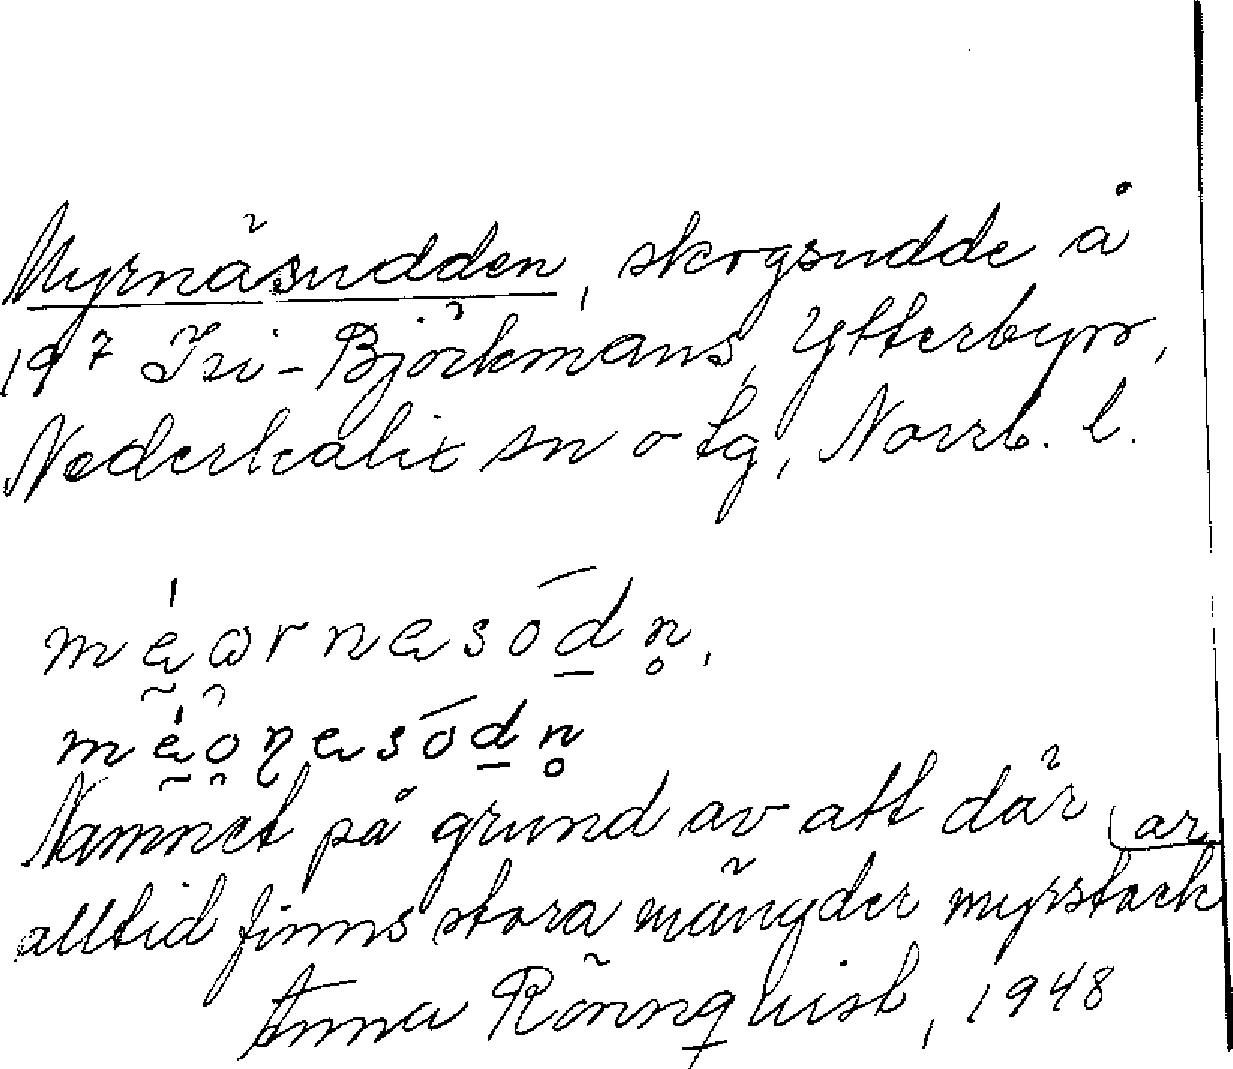 Myrnäsudden, skogsudde å
19⁷ Isi-Björkmans, Ytterbyn,
Nederkalix sn o tg, Norrb. l.
Namnet på grund av att där
alltid finns stora mängder myrstackar
Anna Rönnquist, 1948